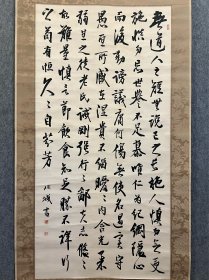 無道人之短無說己之長施人慎勿念受
施慎勿忘世譽不足慕唯仁為紀綱隱心
而後動謗議庸何傷無使名過實守
愚聖所臧在涅貴不淄曖曖內含光柔
弱生之徒老氏誡剛強行行鄙夫志悠悠
故難量慎言節飲食知足勝不祥行
之苟有恆久久自芬芳